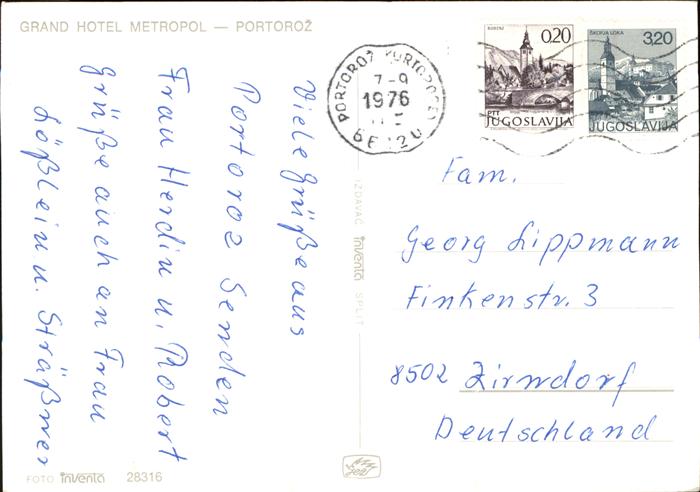 GRAND HOTEL METROPOL — PORTOROŽ
Viele Grüße aus
Portoroz Senden
Frau Herdin u. Robert
Grüße auch an Frau
Lößlein u. Sträßner
FOTO inventa 28316
IZDAVAČ inventa SPLIT
PORTOROŽ
7-9
1976
BOHINJ
0,20
PTT
JUGOSLAVIJA
ŠKOFJA LOKA
3,20
JUGOSLAVIJA
Fam.
Georg Lippmann
Finkenstr. 3
8502 Zirndorf
Deutschland